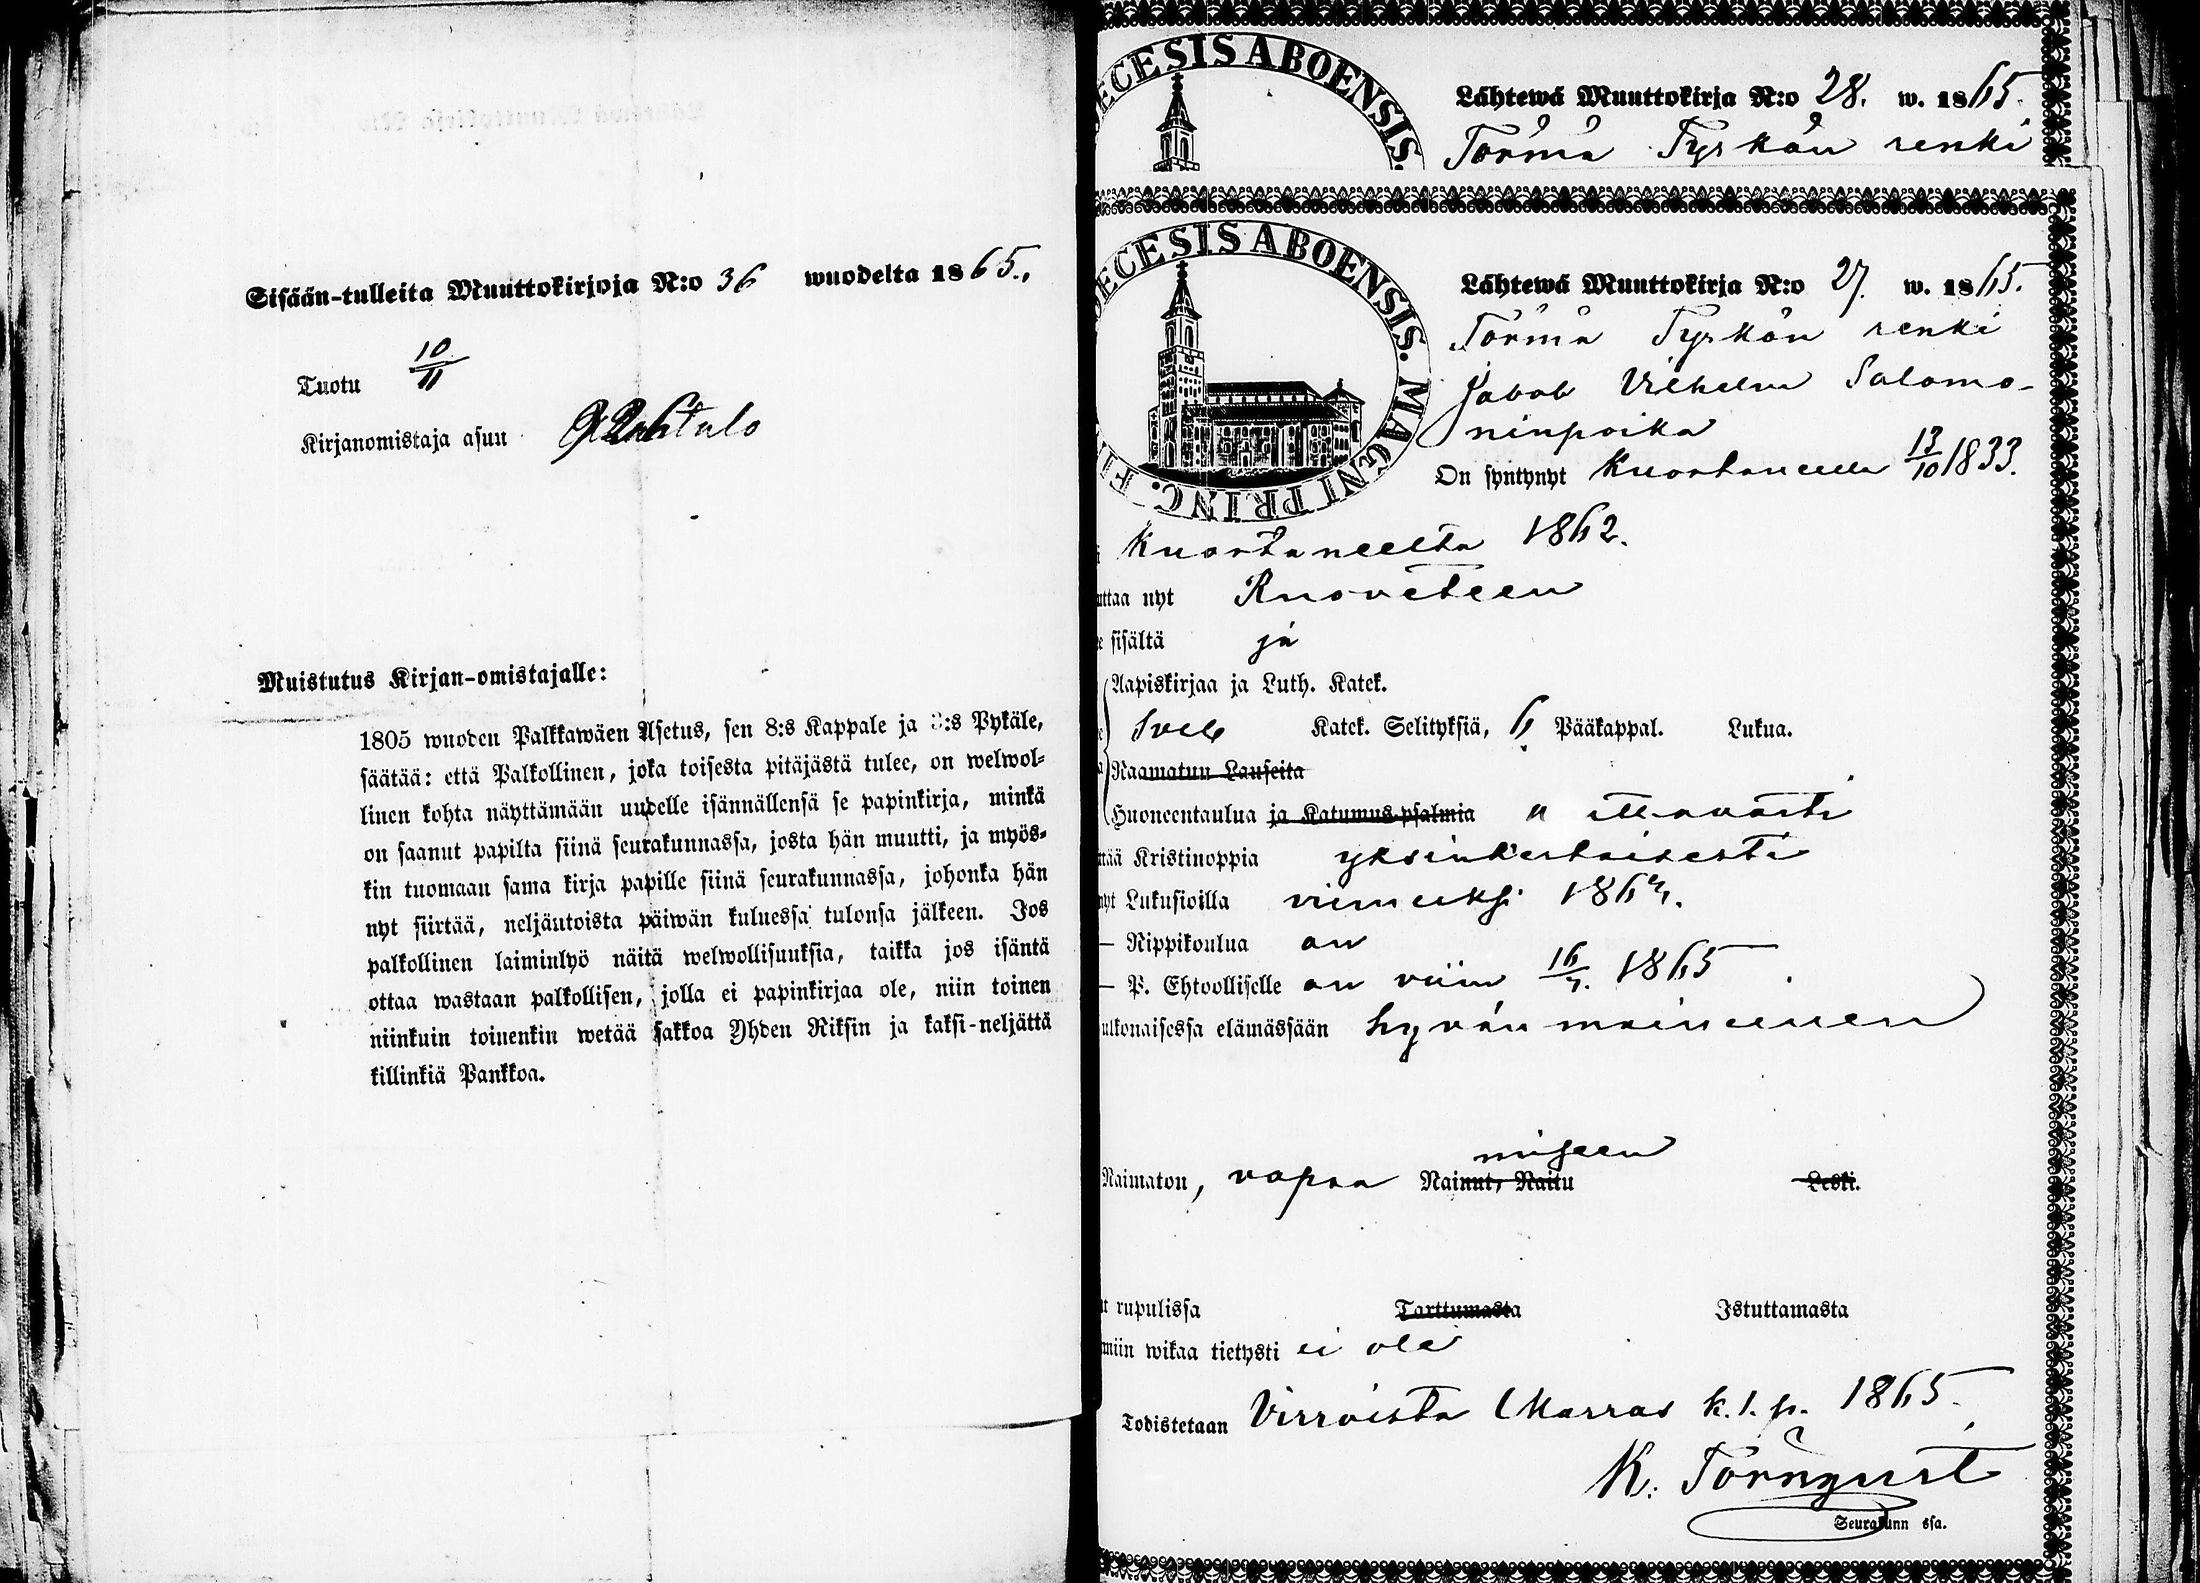 Sisään-tulleita Muuttokirjoja N:o 36 wuodelta 1865.
Tuotu 10/11
Kirjanomistaja asuu
Muistutus Kirjan-omistajalle:
1805 wuoden Palkkawäen Asetus, sen 8:s Kappale ja 3:s Pykäle,
säätää: että Palkollinen, joka toisesta pitäjästä tulee, on welwol=
linen kohta näyttämään uudelle isännällensä se papinkirja, minkä
on saanut papilta siinä seurakunnassa, josta hän muutti, ja myös=
kin tuomaan sama kirja papille siinä seurakunnassa, johonka hän
nyt siirtää, neljäntoista päiwän kuluessa tulonsa jälkeen. Jos
palkollinen laiminlyö näitä welwollisuuksia, taikka jos isäntä
ottaa wastaan palkollisen, jolla ei papinkirjaa ole, niin toinen
niinkuin toinenkin wetää sakkoa Yhden Riksin ja kaksi-neljättä
killinkiä Pankkoa.
ECESIS ABOENSIS.
Lähtewä Muuttokirja N:o 28. w. 1865.
Törmä Tyrkön renki
OECESIS ABOENSIS. MAGNI PRINC. FI
Lähtewä Muuttokirja N:o 27. w. 1865.
Törmä Tyrkön renki
Jakob Vilhelm Salomo-
ninpoika
On syntynyt Kuortaneella 13/10 1833.
Kuortaneelta 1862.
uttaa nyt Ruoveteen
e sisältä jä
Aapiskirjaa ja Luth. Katek.
Sveb Katek. Selityksiä, 6 Pääkappal. Lukua.
Raamatun Lauseita
Huoneentaulua ja Katumus-psalmia u ttavasti
ttää Kristinoppia yksinkertaisesti
nyt Lukusioilla viimeksi 1864.
— Rippikoulua on
— P. Ehtoolliselle on viim 16/7. 1865
ulkonaisessa elämässään hyvän maineinen
miseen
Naimaton, vapaa Nainut, Naitu Leski.
t rupulissa Tarttumasta Istuttamasta
miin wikaa tietysti ei ole
Todistetaan Virroista Marras k. 1. p. 1865.
K. Törnqvist
Seurakunn ssa.